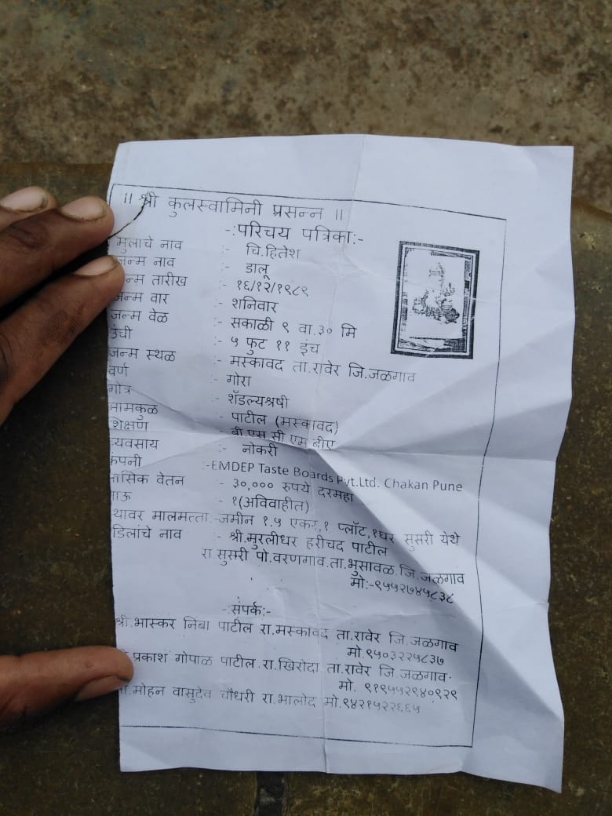 ।। श्री कुलस्वामिनी प्रसन्न ।।
-:परिचय पत्रिका:-
मुलाचे नाव :- चि.हितेश
जन्म नाव :- डालू
जन्म तारीख :- १६/१२/१९८९
जन्म वार :- शनिवार
जन्म वेळ :- सकाळी ९ वा.३० मि
उंची :- ५ फुट ११ इंच
जन्म स्थळ :- मस्कावद ता.रावेर जि.जळगाव
वर्ण :- गोरा
गोत्र :- शॅडल्यश्रषी
मामकुळ :- पाटील (मस्कावद)
शिक्षण :- बी.एस.सी.एम.बीए
व्यवसाय :- नोकरी
कंपनी :-EMDEP Taste Boards Pvt.Ltd. Chakan Pune
मासिक वेतन - ३०,००० रुपये दरमहा
भाऊ - १(अविवाहीत)
स्थावर मालमत्ता- जमीन १.५ एकर,१ प्लॉट,१घर सुसरी येथे
वडिलांचे नाव - श्री.मुरलीधर हरीचद पाटील
रा.सुसरी पो.वरणगाव.ता.भुसावळ.जि.जळगाव
मो:-९५५२७४५८३८
-:संपर्क:-
श्री.भास्कर निबा पाटील रा.मस्कावद ता.रावेर जि.जळगाव
मो ९५०३२२५८३७
प्रकाश गोपाळ पाटील.रा.खिरोदा ता.रावेर जि.जळगाव.
मो. ९१९५५२९४०९२९
मोहन वासुदेव चौधरी रा.भालोद मो.९४२१५२२६६५